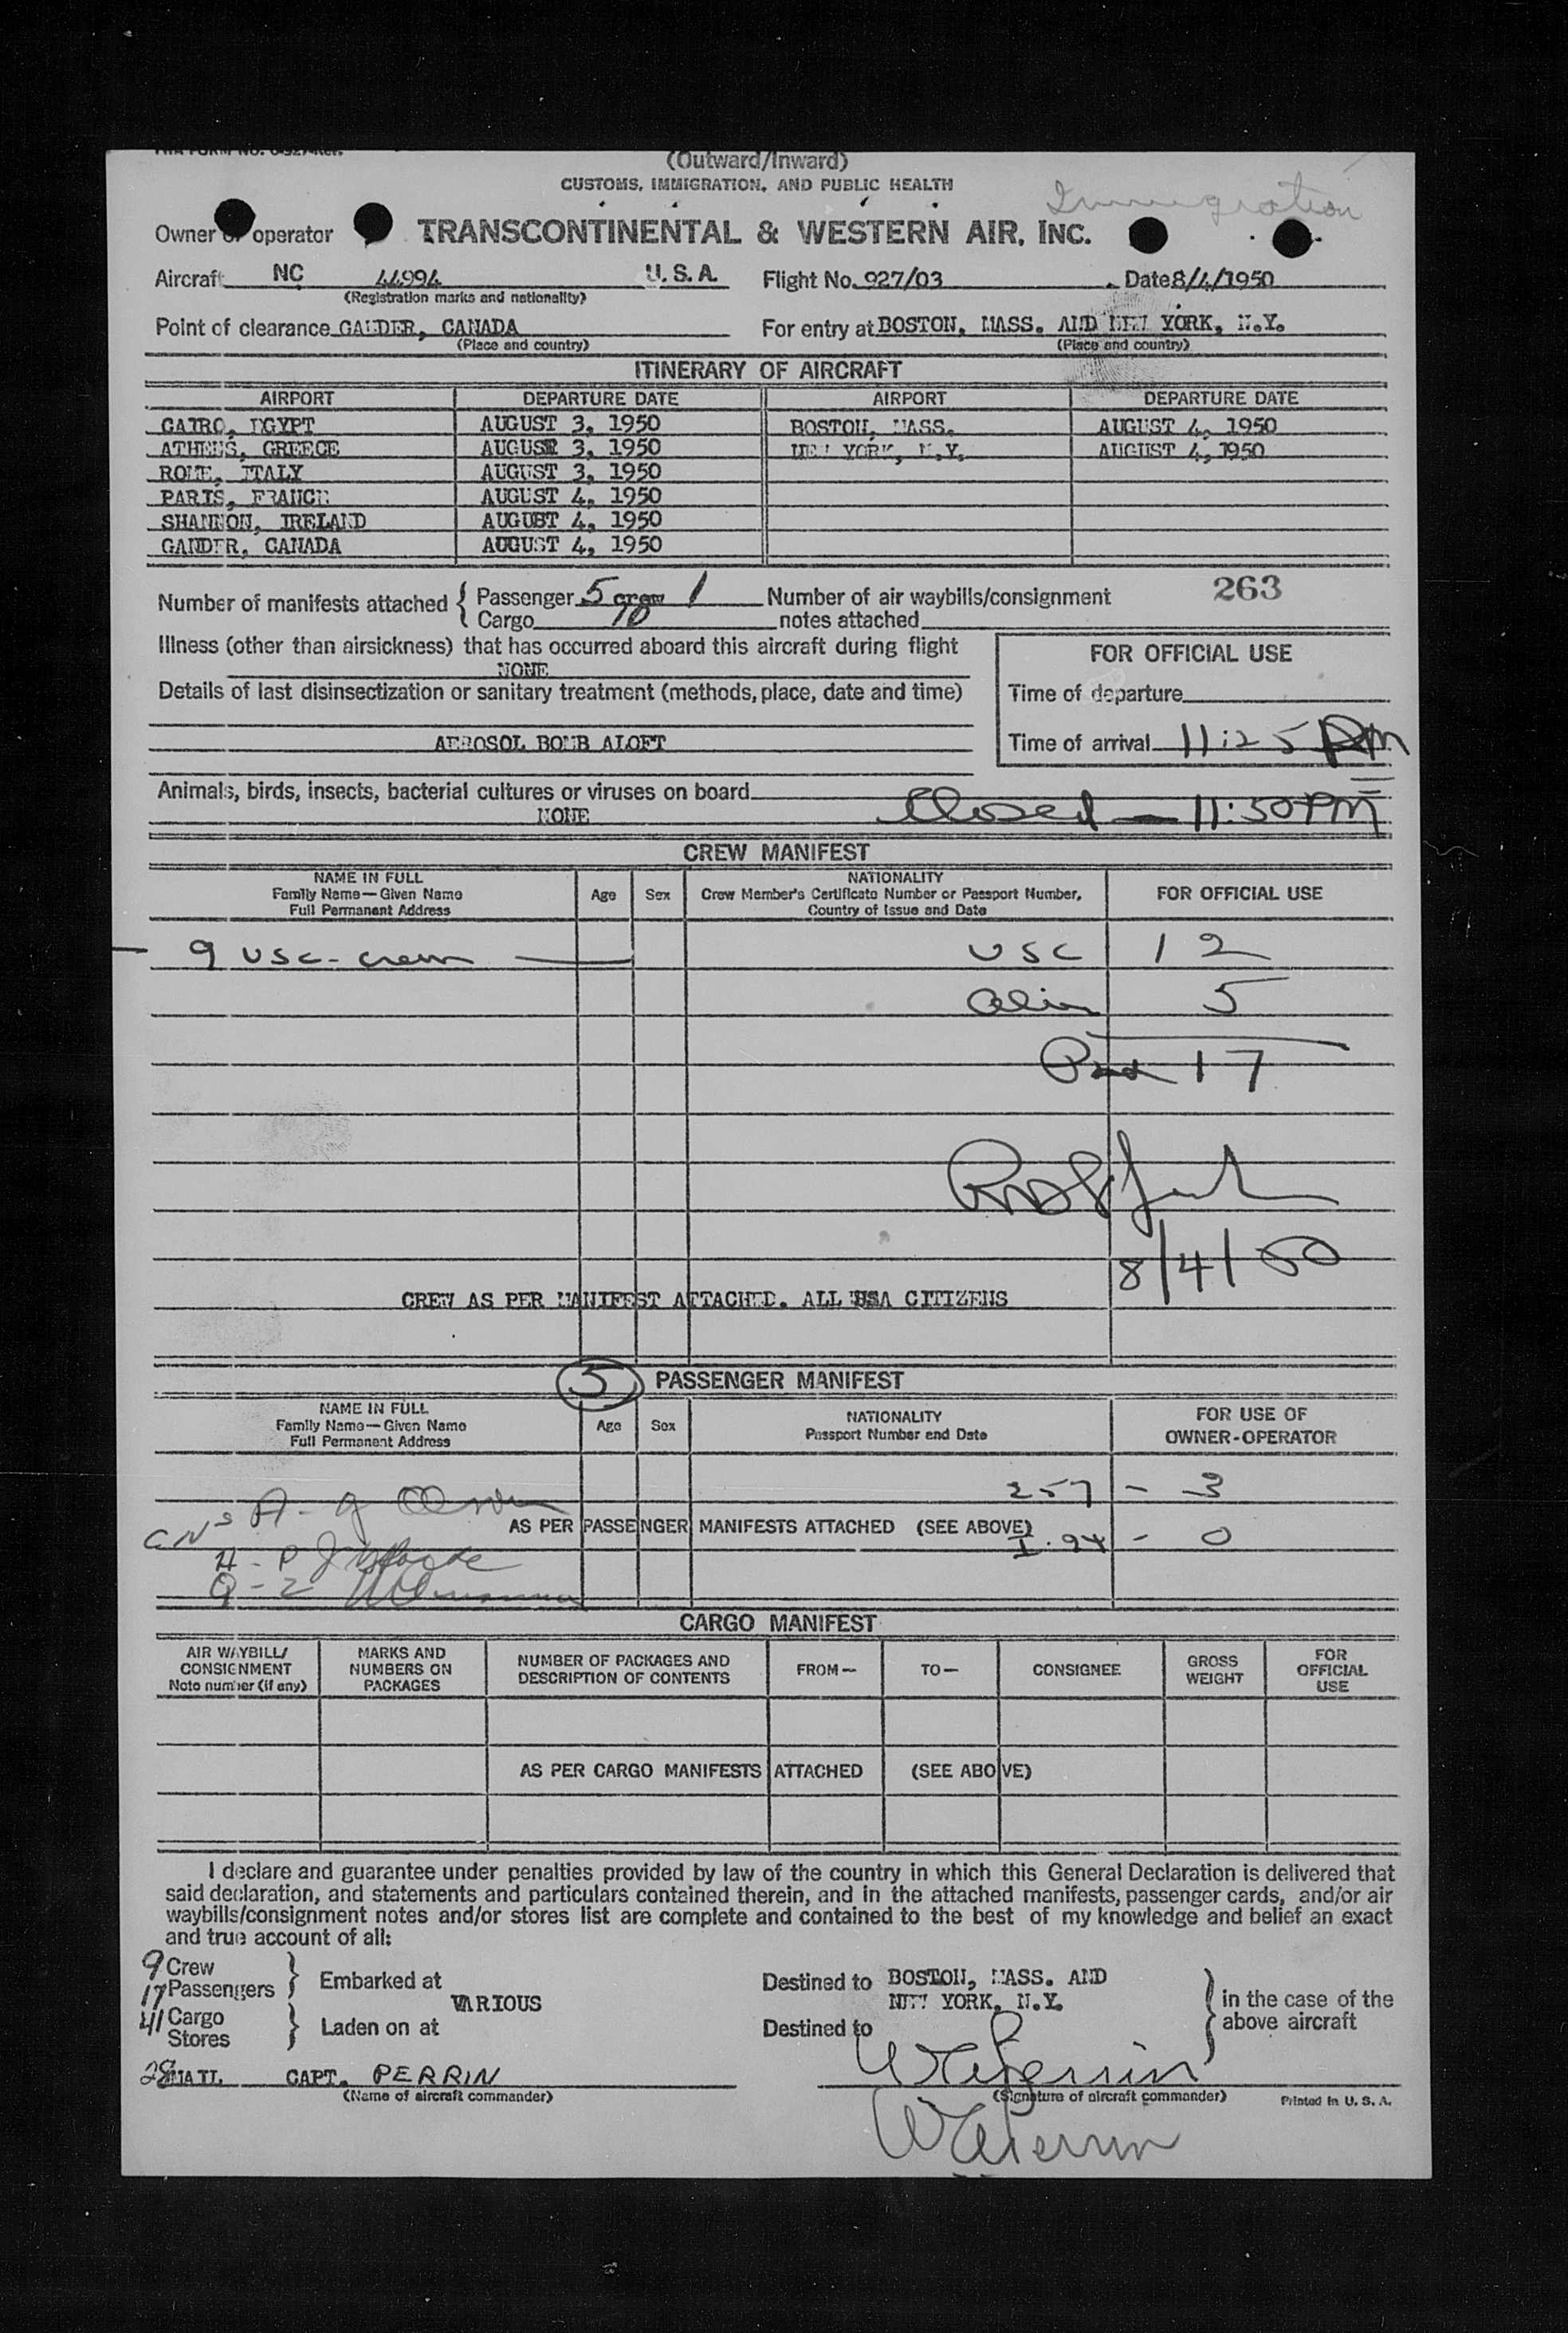 (Outward/Inward)
CUSTOMS, IMMIGRATION, AND PUBLIC HEALTH
Immigration
Owner or operator TRANSCONTINENTAL & WESTERN AIR, INC.
Aircraft NC 44994 U.S.A. Flight No. 927/03 Date 8/4/1950
(Registration marks and nationality)
Point of clearance GANDER, CANADA For entry at BOSTON, MASS. AND NEW YORK, N.Y.
(Place and country) (Place and country)
ITINERARY OF AIRCRAFT
AIRPORT DEPARTURE DATE AIRPORT DEPARTURE DATE
CAIRO, EGYPT AUGUST 3, 1950 BOSTON, MASS. AUGUST 4, 1950
ATHENS, GREECE AUGUST 3, 1950 NEW YORK, N.Y. AUGUST 4, 1950
ROME, ITALY AUGUST 3, 1950
PARIS, FRANCE AUGUST 4, 1950
SHANNON, IRELAND AUGUST 4, 1950
GANDER, CANADA AUGUST 4, 1950
263
Number of manifests attached { Passenger 5 crew 1 Number of air waybills/consignment
Cargo 10 notes attached
Illness (other than airsickness) that has occurred aboard this aircraft during flight
NONE
FOR OFFICIAL USE
Details of last disinsectization or sanitary treatment (methods, place, date and time)
Time of departure
AEROSOL BOMB ALOFT
Time of arrival 11:25 PM
Animals, birds, insects, bacterial cultures or viruses on board
NONE
Closed — 11:50 PM
CREW MANIFEST
NAME IN FULL
Family Name—Given Name
Full Permanent Address
Age Sex
NATIONALITY
Crew Member's Certificate Number or Passport Number,
Country of Issue and Date
FOR OFFICIAL USE
— 9 USC - crew — USC 12
Alien 5
17
8/4/50
CREW AS PER MANIFEST ATTACHED. ALL USA CITIZENS
5 PASSENGER MANIFEST
NAME IN FULL
Family Name—Given Name
Full Permanent Address
Age Sex
NATIONALITY
Passport Number and Date
FOR USE OF
OWNER-OPERATOR
257 - 3
A - G
AS PER PASSENGER MANIFESTS ATTACHED (SEE ABOVE)
I-94 - 0
H - P
Q - Z
CARGO MANIFEST
AIR WAYBILL/
CONSIGNMENT
Note number (if any)
MARKS AND
NUMBERS ON
PACKAGES
NUMBER OF PACKAGES AND
DESCRIPTION OF CONTENTS
FROM— TO— CONSIGNEE
GROSS
WEIGHT
FOR
OFFICIAL
USE
AS PER CARGO MANIFESTS ATTACHED (SEE ABOVE)
I declare and guarantee under penalties provided by law of the country in which this General Declaration is delivered that
said declaration, and statements and particulars contained therein, and in the attached manifests, passenger cards, and/or air
waybills/consignment notes and/or stores list are complete and contained to the best of my knowledge and belief an exact
and true account of all:
9 Crew
17 Passengers } Embarked at
VARIOUS
41 Cargo
Stores } Laden on at
Destined to BOSTON, MASS. AND
NEW YORK, N.Y.
Destined to
} in the case of the
above aircraft
28 MAIL CAPT. PERRIN W C Perrin
(Name of aircraft commander) (Signature of aircraft commander) Printed in U. S. A.
W C Perrin